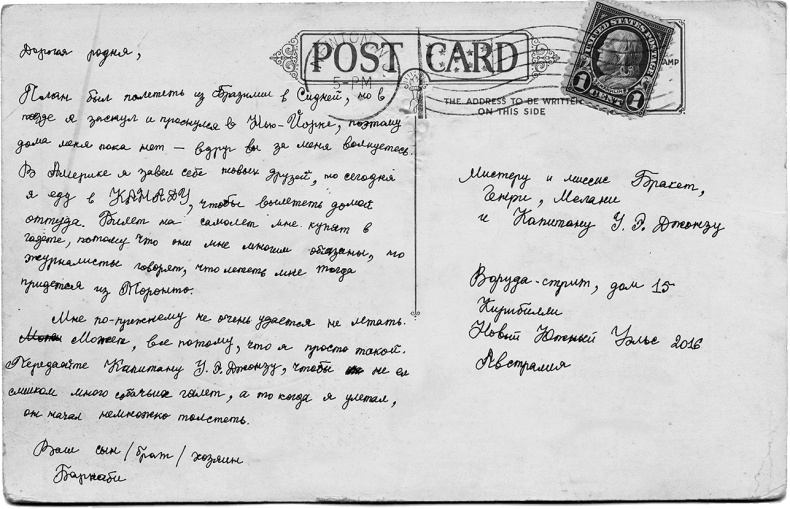 Дорогая родня,
План был полететь из Бразилии в Сидней, но в
поезде я заснул и проснулся в Нью-Йорке, поэтому
дома меня пока нет — вдруг вы за меня волнуетесь.
В Америке я завел себе новых друзей, но сегодня
я еду в КАНАДУ, чтобы вылететь домой
оттуда. Билет на самолет мне купят в
газете, потому что они мне многим обязаны, но
журналисты говорят, что лететь мне тогда
придется из Торонто.
Мне по-прежнему не очень удается не летать.
Может, все потому, что я просто такой.
Передайте Капитану У. Э. Джонзу, чтобы не ел
слишком много собачьих галет, а то когда я улетал,
он начал немножко толстеть.
Ваш сын / брат / хозяин
Барнаби
POST CARD
5-PM
THE ADDRESS TO BE WRITTEN
ON THIS SIDE
UNITED STATES POSTAGE
1 CENT 1
Мистеру и миссис Бракет,
Генри, Мелани
и Капитану У. Э. Джонзу
Варуда-стрит, дом 15
Киррибилли
Новый Южный Уэльс 2016
Австралия